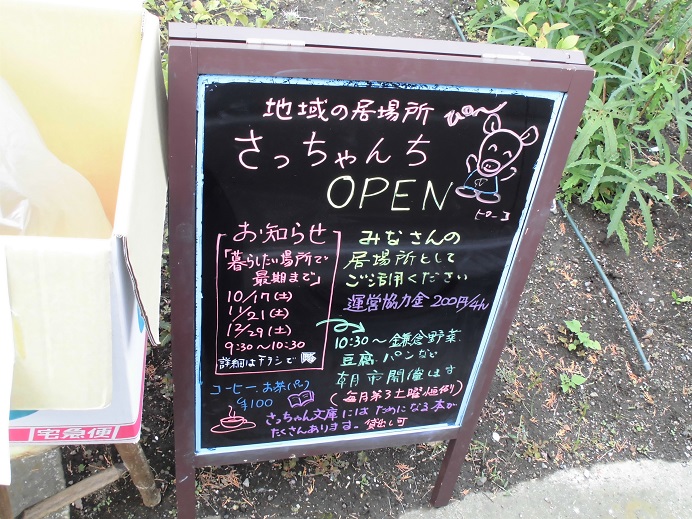 地域の居場所
さっちゃんち
OPEN
お知らせ
「暮らしたい場所で
最期まで」
10/17(土)
11/21(土)
12/29(土)
9:30～10:30
詳細はチラシで
コーヒー、お茶
¥100
みなさんの
居場所として
ご活用ください
運営協力金 200円/4h
10:30～鎌倉野菜
豆腐 パンなど
朝市開催します
(毎月第3土曜
さっちゃん文庫にはためになる本が
たくさんあります。貸出し可
宅急便